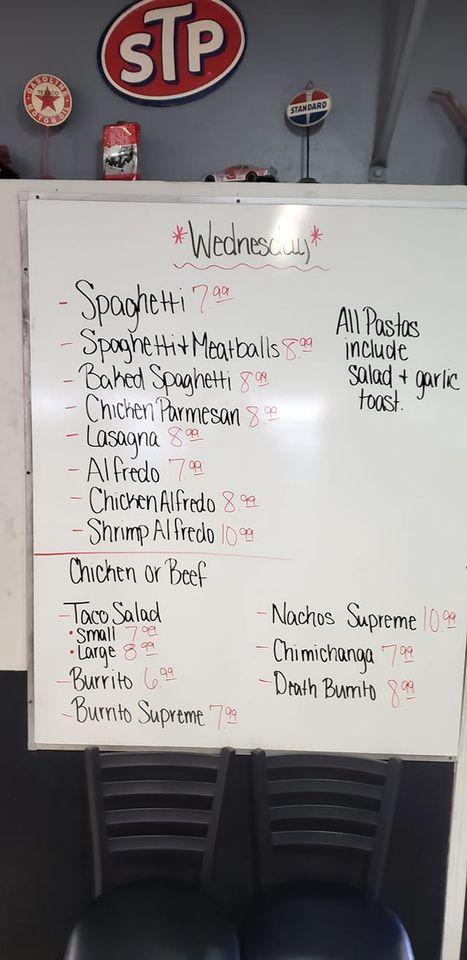 STP
GASOLINE
TEXACO
MOTOR OIL
STANDARD
*Wednesday*
- Spaghetti 7.99
- Spaghetti + Meatballs 8.99
- Baked Spaghetti 8.99
- Chicken Parmesan 8.99
- Lasagna 8.99
- Alfredo 7.99
- Chicken Alfredo 8.99
- Shrimp Alfredo 10.99
All Pastas
include
salad + garlic
toast.
Chicken or Beef
- Taco Salad
• Small 7.99
• Large 8.99
- Burrito 6.99
- Burrito Supreme 7.99
- Nachos Supreme 10.99
- Chimichanga 7.99
- Death Burrito 8.99